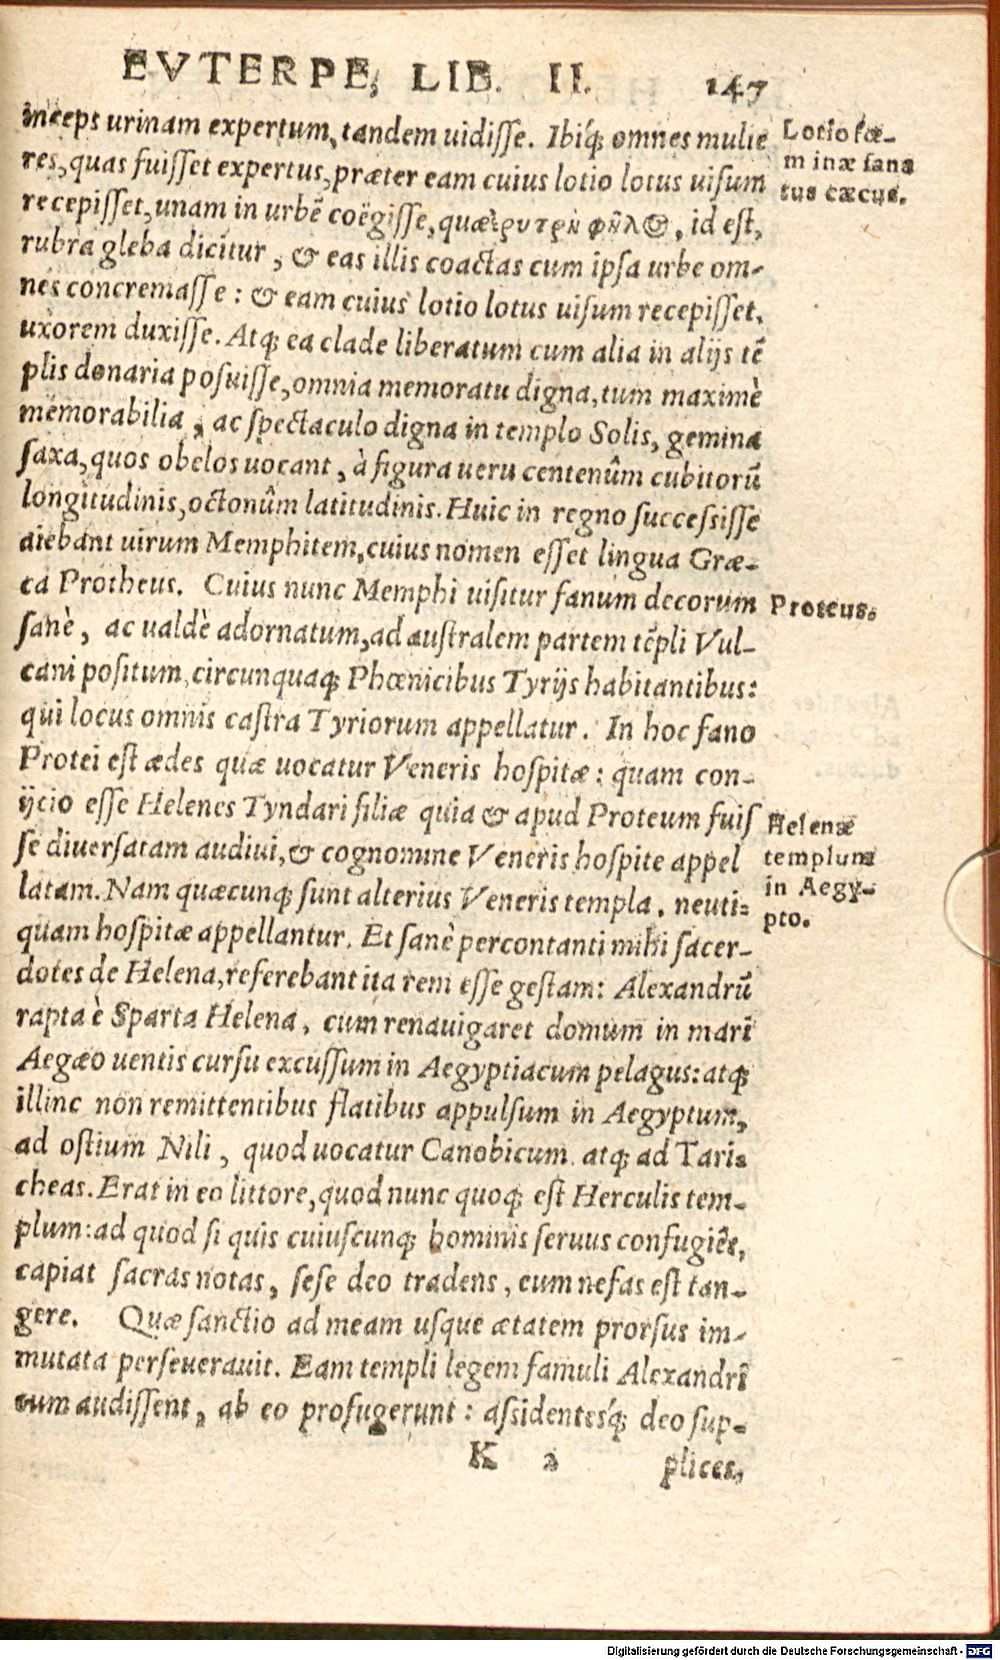 EVTERPE, LIB. II. 147
inceps urinam expertum, tandem uidisse. Ibiq́; omnes mulie
res, quas fuisset expertus, præter eam cuius lotio lotus uisum
recepisset, unam in urbē coëgisse, quæ
, id est,
rubra gleba dicitur, & eas illis coactas cum ipsa urbe om-
nes concremasse: & eam cuius lotio lotus uisum recepisset,
uxorem duxisse. Atq; ea clade liberatum cum alia in alijs tē
plis donaria posuisse, omnia memoratu digna, tum maximè
memorabilia, ac spectaculo digna in templo Solis, gemina
saxa, quos obelos uocant, à figura ueru centenûm cubitorū
longitudinis, octonûm latitudinis. Huic in regno successisse
aiebant uirum Memphitem, cuius nomen esset lingua Græ-
ca Protheus. Cuius nunc Memphi uisitur fanum decorum
sanè, ac ualdè adornatum, ad australem partem tēpli Vul-
cani positum, circunquaq; Phœnicibus Tyrijs habitantibus:
qui locus omnis castra Tyriorum appellatur. In hoc fano
Protei est ædes quæ uocatur Veneris hospitæ: quam con-
ijcio esse Helenes Tyndari filiæ quia & apud Proteum fuis
se diuersatam audiui, & cognomine Veneris hospite appel
latam. Nam quæcunq; sunt alterius Veneris templa, neuti-
quam hospitæ appellantur. Et sanè percontanti mihi sacer-
dotes de Helena, referebant ita rem esse gestam: Alexandrū
rapta è Sparta Helena, cum renauigaret domum in mari
Aegæo uentis cursu excussum in Aegyptiacum pelagus: atq;
illinc non remittentibus flatibus appulsum in Aegyptum,
ad ostium Nili, quod uocatur Canobicum atq; ad Tari-
cheas. Erat in eo littore, quod nunc quoq; est Herculis tem-
plum: ad quod si quis cuiuscunq; hominis seruus confugiēs,
capiat sacras notas, sese deo tradens, eum nefas est tan-
gere. Quæ sanctio ad meam usque ætatem prorsus im-
mutata perseuerauit. Eam templi legem famuli Alexandri
cum audissent, ab eo profugerunt: assidentesq́; deo sup-
K 2 plices,
Lotio fœ-
minæ sana
tus cæcus.
Proteus.
Helenæ
templum
in Aegy-
pto.
Digitalisierung gefördert durch die Deutsche Forschungsgemeinschaft - DFG